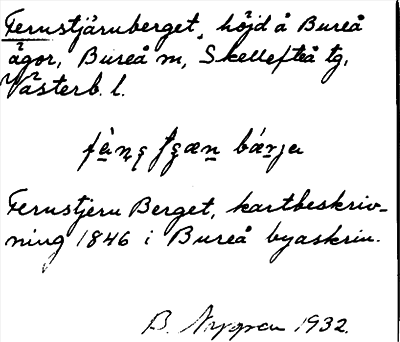 Fernstjärnberget, höjd å Bureå
ägor, Bureå m, Skellefteå tg,
Västerb. l.
Fernstjern Berget, kartbeskriv-
ning 1846 i Bureå byaskrin.
B. Nygren 1932.